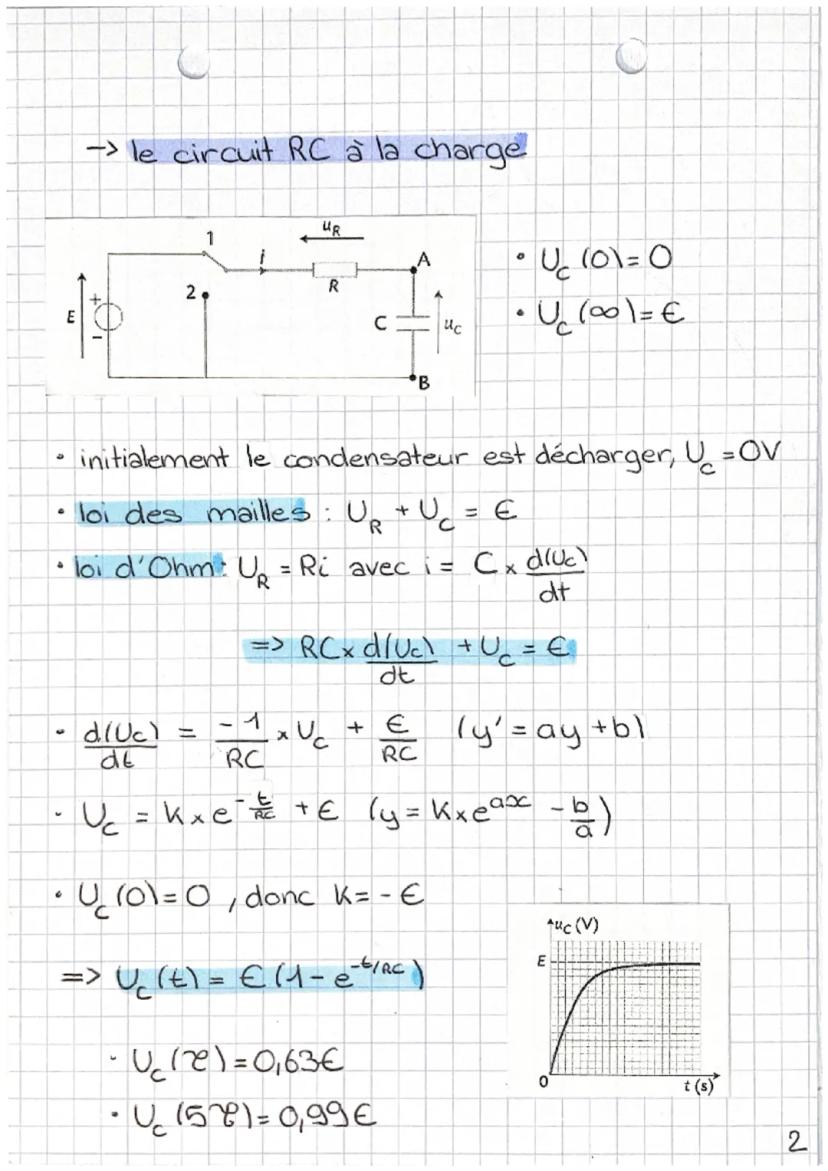 -> le circuit RC à la charge
1
uR
i
A
2
E
+
-
R
C
uC
B
• Uc(0)=0
• Uc(∞)=E
• initialement le condensateur est décharger, Uc=0V
• loi des mailles : UR + Uc = E
• loi d'Ohm : UR = Ri avec i = C x d(Uc)/dt
=> RC x d(Uc)/dt + Uc = E
• d(Uc)/dt = -1/RC x Uc + E/RC (y' = ay + b)
• Uc = K x e^(-t/RC) + E (y = K x e^(ax) - b/a)
• Uc(0)=0, donc K = -E
=> Uc(t) = E(1 - e^(-t/RC))
• Uc(τ) = 0,63E
• Uc(5τ) = 0,99E
uC (V)
E
0
t (s)
2